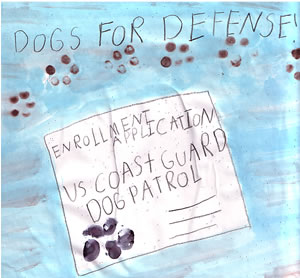 DOGS FOR DEFENSE!
ENROLLMENT
APPLICATION
US COAST GUARD
DOG PATROL